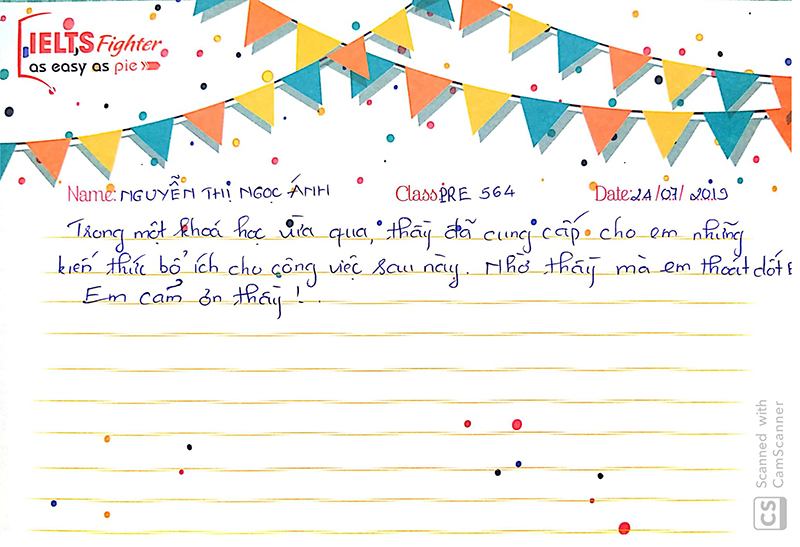 IELTS Fighter
as easy as pie
Name: NGUYỄN THỊ NGỌC ÁNH Class: PRE 564 Date: 21/07/2019
Trong một khoá học vừa qua, thầy đã cung cấp cho em những
kiến thức bổ ích cho công việc sau này. Nhờ thầy mà em thoát dốt E
Em cảm ơn thầy!
Scanned with
CamScanner
CS